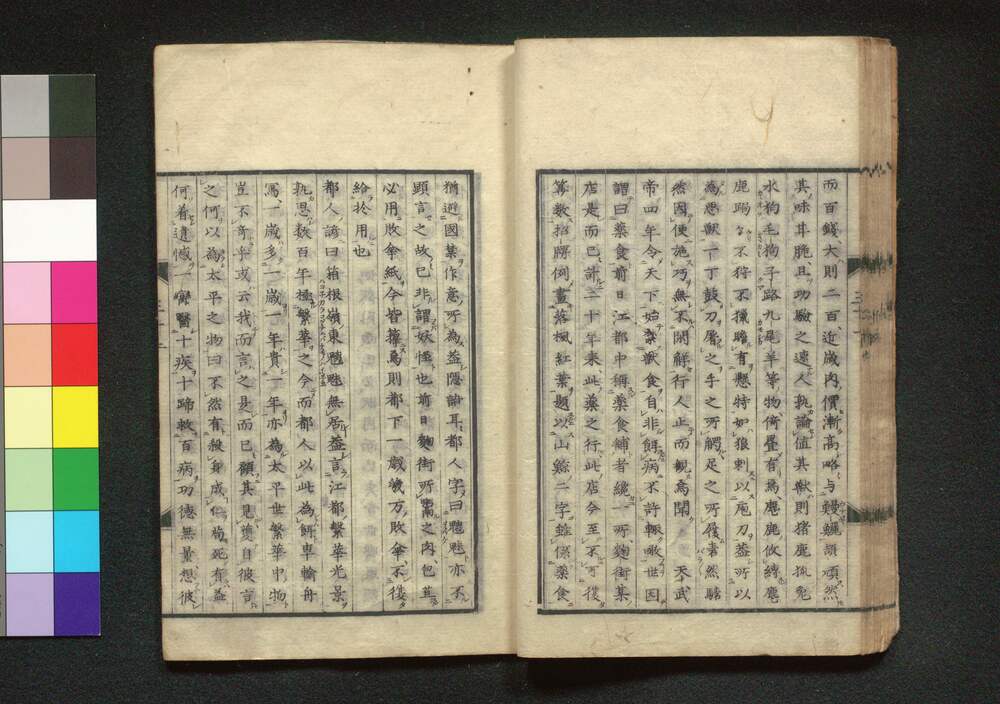 而百錢、大則二百、近歲肉價漸高略与鰻鱺頡頏然
其味甘脆且功驗之速人孰論值其獸則猪鹿狐兎
水狗毛狗子路九尾羊等物倚疊有焉應鹿攸
鹿踢々不狩不獵瞻有懸特如狼刺以庖刀蓋所以
為惡獸一丁鼓刀屠之手之所觸足之所履砉然騞
然因便施巧無不閑解行人止而観焉聞 天武
帝四年令天下始禁獸食自非餌病不許輙噉世因
謂曰藥食前日江都中稱藥食鋪者纔一所麴街某
店是而已計二十年来此藥之行此店今至不可復
筭數招牌例畫落楓紅葉題以山鯨二字銓係藥食
猶避國禁作意所為蓋隱諭耳都人字曰魑魅亦不
顕言之故已非謂妖恠也前日麴街所鬻之肉包苴
必用敗傘紙今皆籜焉則都下一歲幾万敗傘不復
給於用也
都人諺曰箱根嶺東魑魅無居蓋言江都繁華光景
孰思数百年極繁華之今而都人以此為餌車輸舟
馬一歲多一歲一年貴一年亦為太平世繁華中物
豈不奇乎或云我而言之是而已顧其見獲自彼言
之何以為太平之物曰不然有殺身成仁焉死有益
何着遺憾一實醫十疾十蹄救百病功德無量想彼